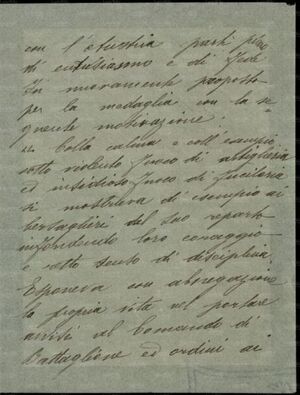 con l'Austria partì pieno
di entusiasmo e di fede
Fu nuovamente proposto
per la medaglia con la se
guente motivazione.
" Colla calma e coll'esempio
sotto violento fuoco di artiglieria
ed insidioso fuoco di fucileria
si mostrava di esempio ai
bersaglieri del suo reparto
infondendo loro coraggio
e alto senso di disciplina.
Esponeva con abnegazione
la propria vita nel portare
avvisi al Comando di
Battaglione ed ordini ai